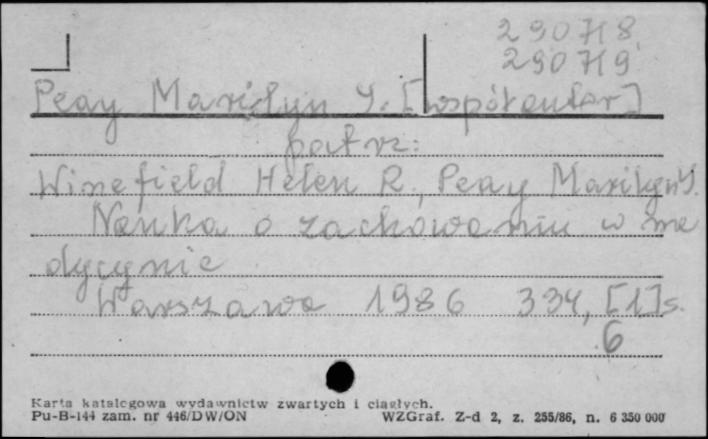 290718
290719
Peay Marilyn Y. [współautor]
patrz:
Winefield Helen R., Peay Marilyn Y.
Nauka o zachowaniu w me
dycynie
Warszawa 1986 334, [1] s.
6
Karta katalogowa wydawnictw zwartych i ciągłych.
Pu-B-144 zam. nr 446/DW/ON WZGraf. Z-d 2, z. 255/86, n. 6 350 000